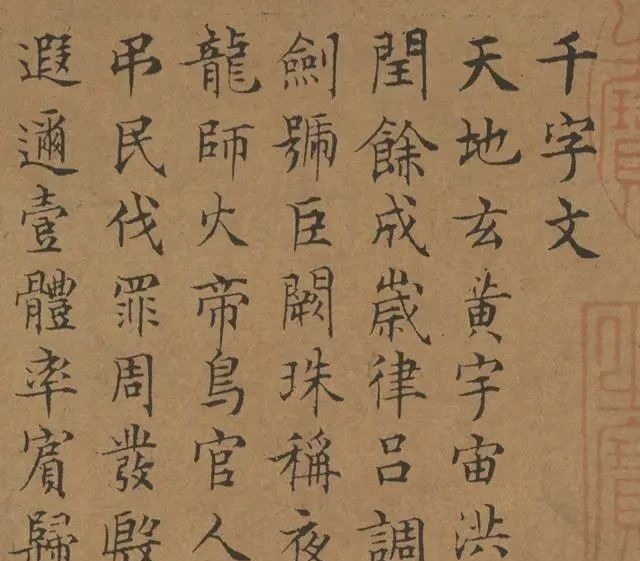 千字文
天地玄黄宇宙洪
閏餘成歲律吕調
劍號巨闕珠稱夜
龍師火帝鳥官人
弔民伐罪周發殷
遐邇壹體率賓歸